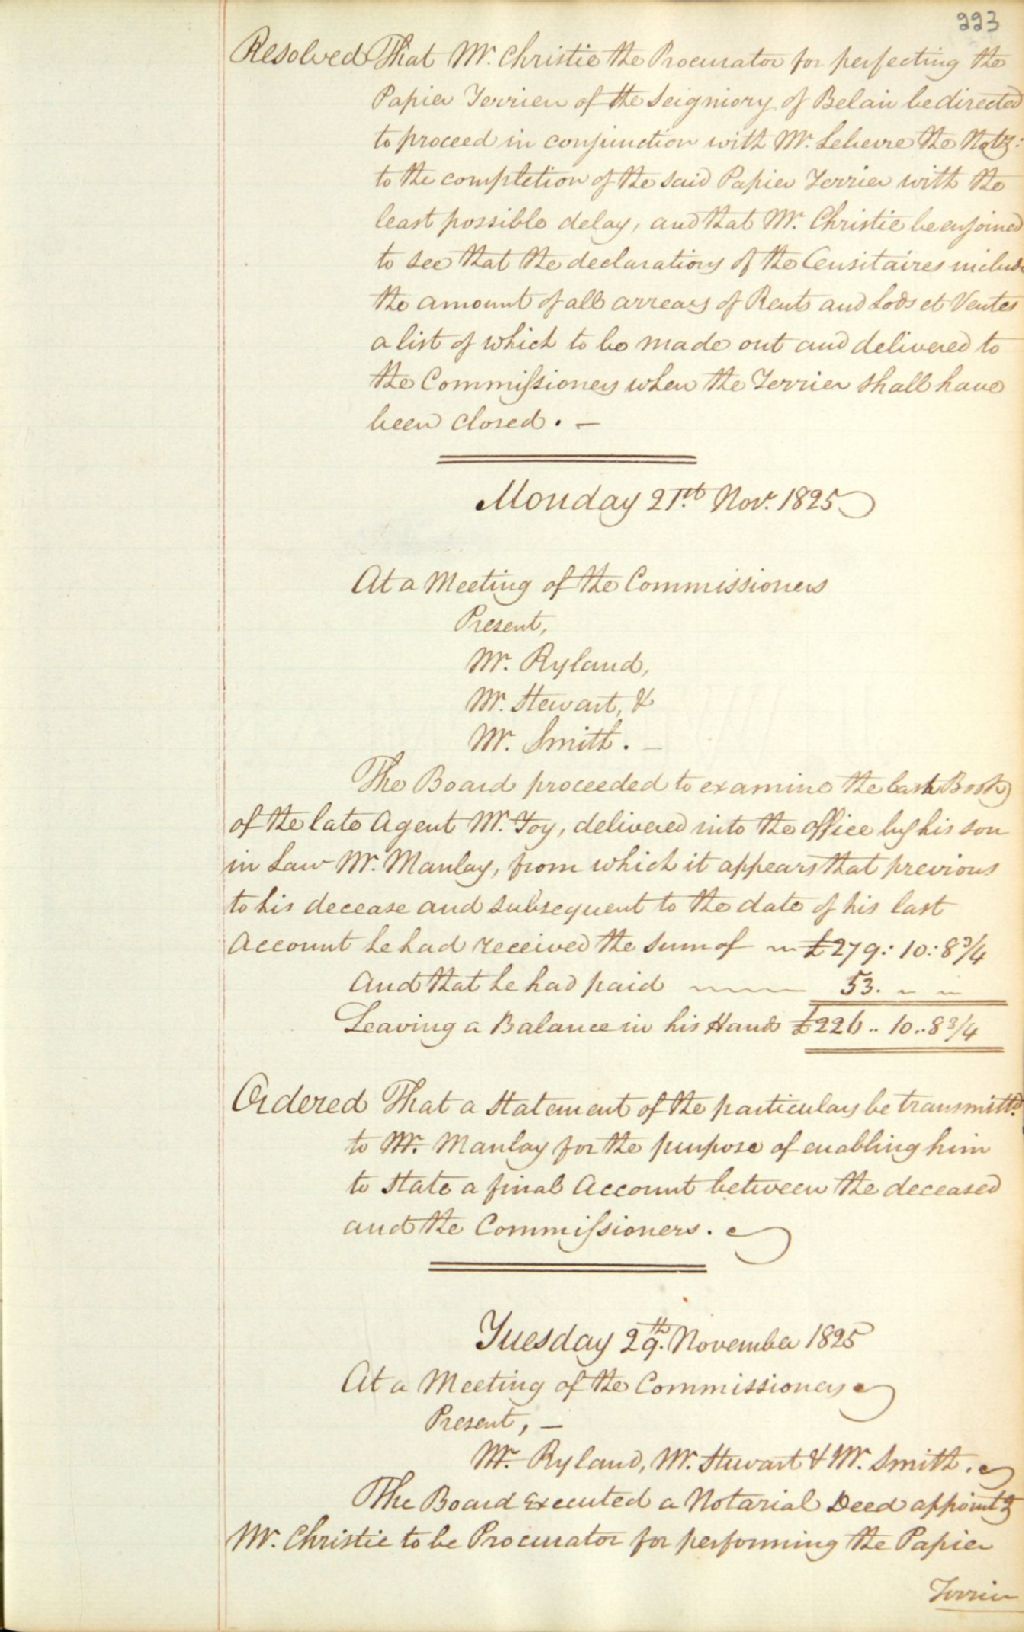 223
Resolved That Mr. Christie the Procurator for perfecting the
Papier Terrier of the Seigniory of Belair be directed
to proceed in conjunction with Mr. Lelievre the Noty:
to the completion of the said Papier Terrier with the
least possible delay, and that Mr. Christie be enjoined
to see that the declarations of the Censitaires include
the amount of all arrears of Rents and Lods et Ventes
a list of which to be made out and delivered to
the Commissioners when the Terrier shall have
been closed. —
Monday 21st. Nov. 1825
At a Meeting of the Commissioners
Present,
Mr. Ryland,
Mr. Stewart, &
Mr. Smith. —
The Board proceeded to examine the Cash Book
of the late Agent Mr. Foy, delivered into the office by his son
in Law Mr. Manlay, from which it appears that previous
to his decease and subsequent to the date of his last
Account he had received the sum of £279: 10: 8 3/4
And that he had paid 53. " "
Leaving a Balance in his Hands £226 .. 10 .. 8 3/4
Ordered That a Statement of the particulars be transmittd.
to Mr. Manlay for the purpose of enabling him
to state a final Account between the deceased
and the Commissioners.
Tuesday 29th. November 1825
At a Meeting of the Commissioners
Present, —
Mr. Ryland, Mr. Stewart & Mr. Smith.
The Board Executed a Notarial Deed appointg
Mr. Christie to be Procurator for performing the Papier
Terrier